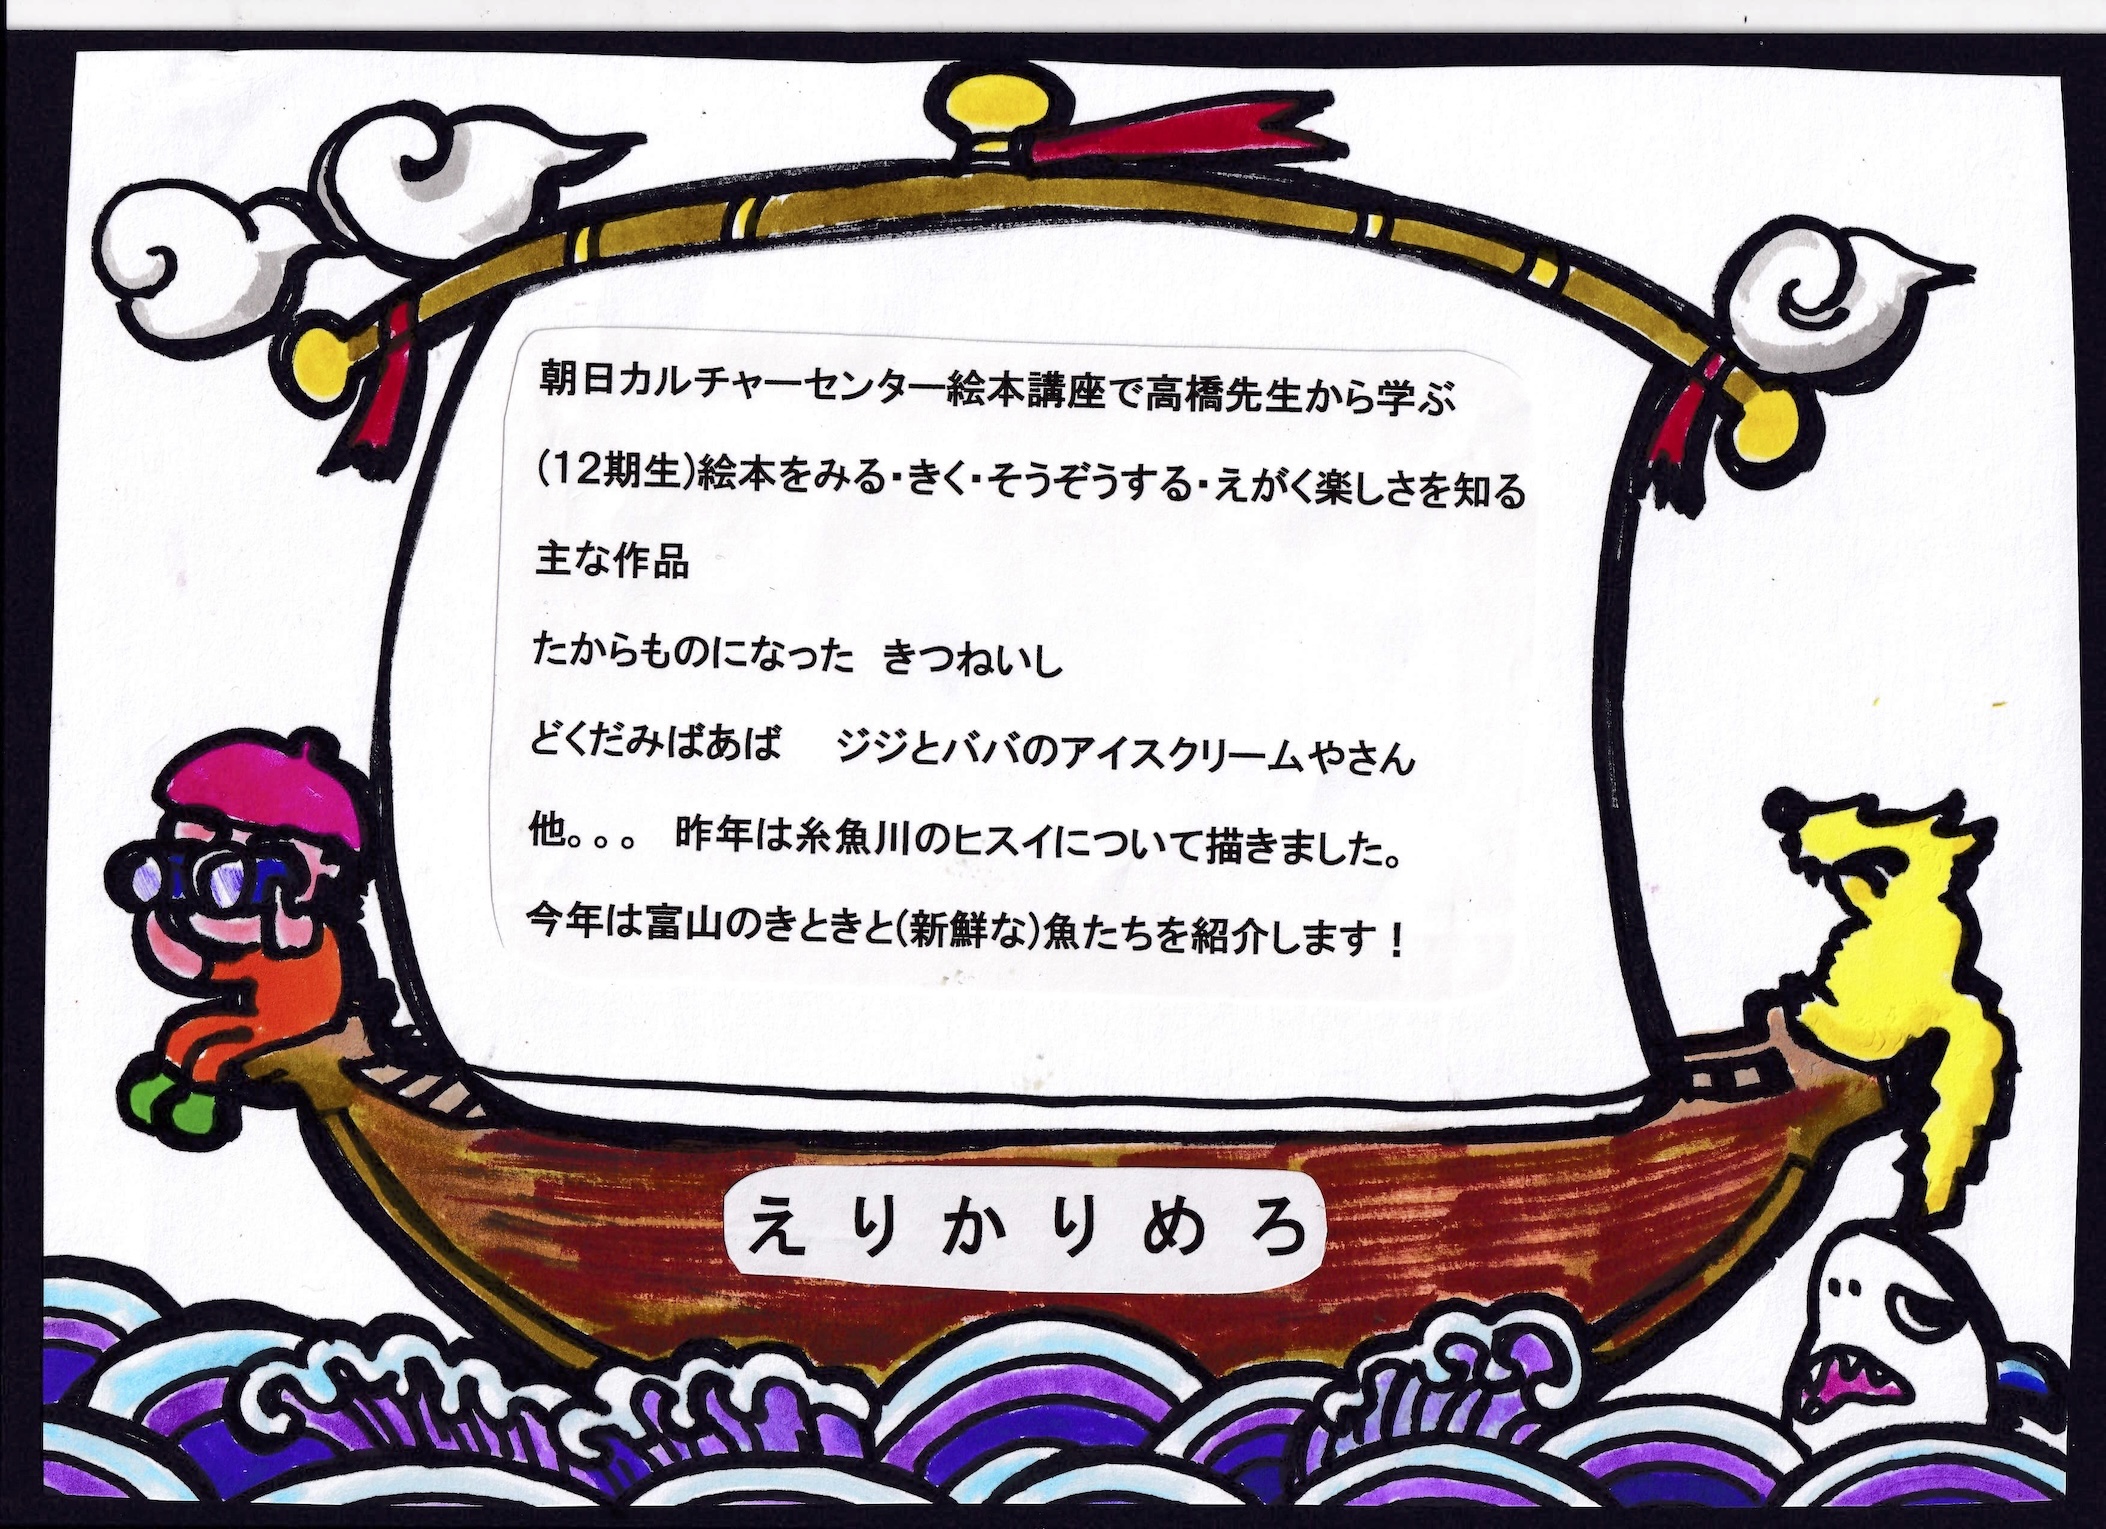 朝日カルチャーセンター絵本講座で高橋先生から学ぶ
(12期生)絵本をみる・きく・そうぞうする・えがく楽しさを知る
主な作品
たからものになった　きつねいし
どくだみばあば　ジジとババのアイスクリームやさん
他。。。　昨年は糸魚川のヒスイについて描きました。
今年は富山のきときと(新鮮な)魚たちを紹介します！
えりかりめろ